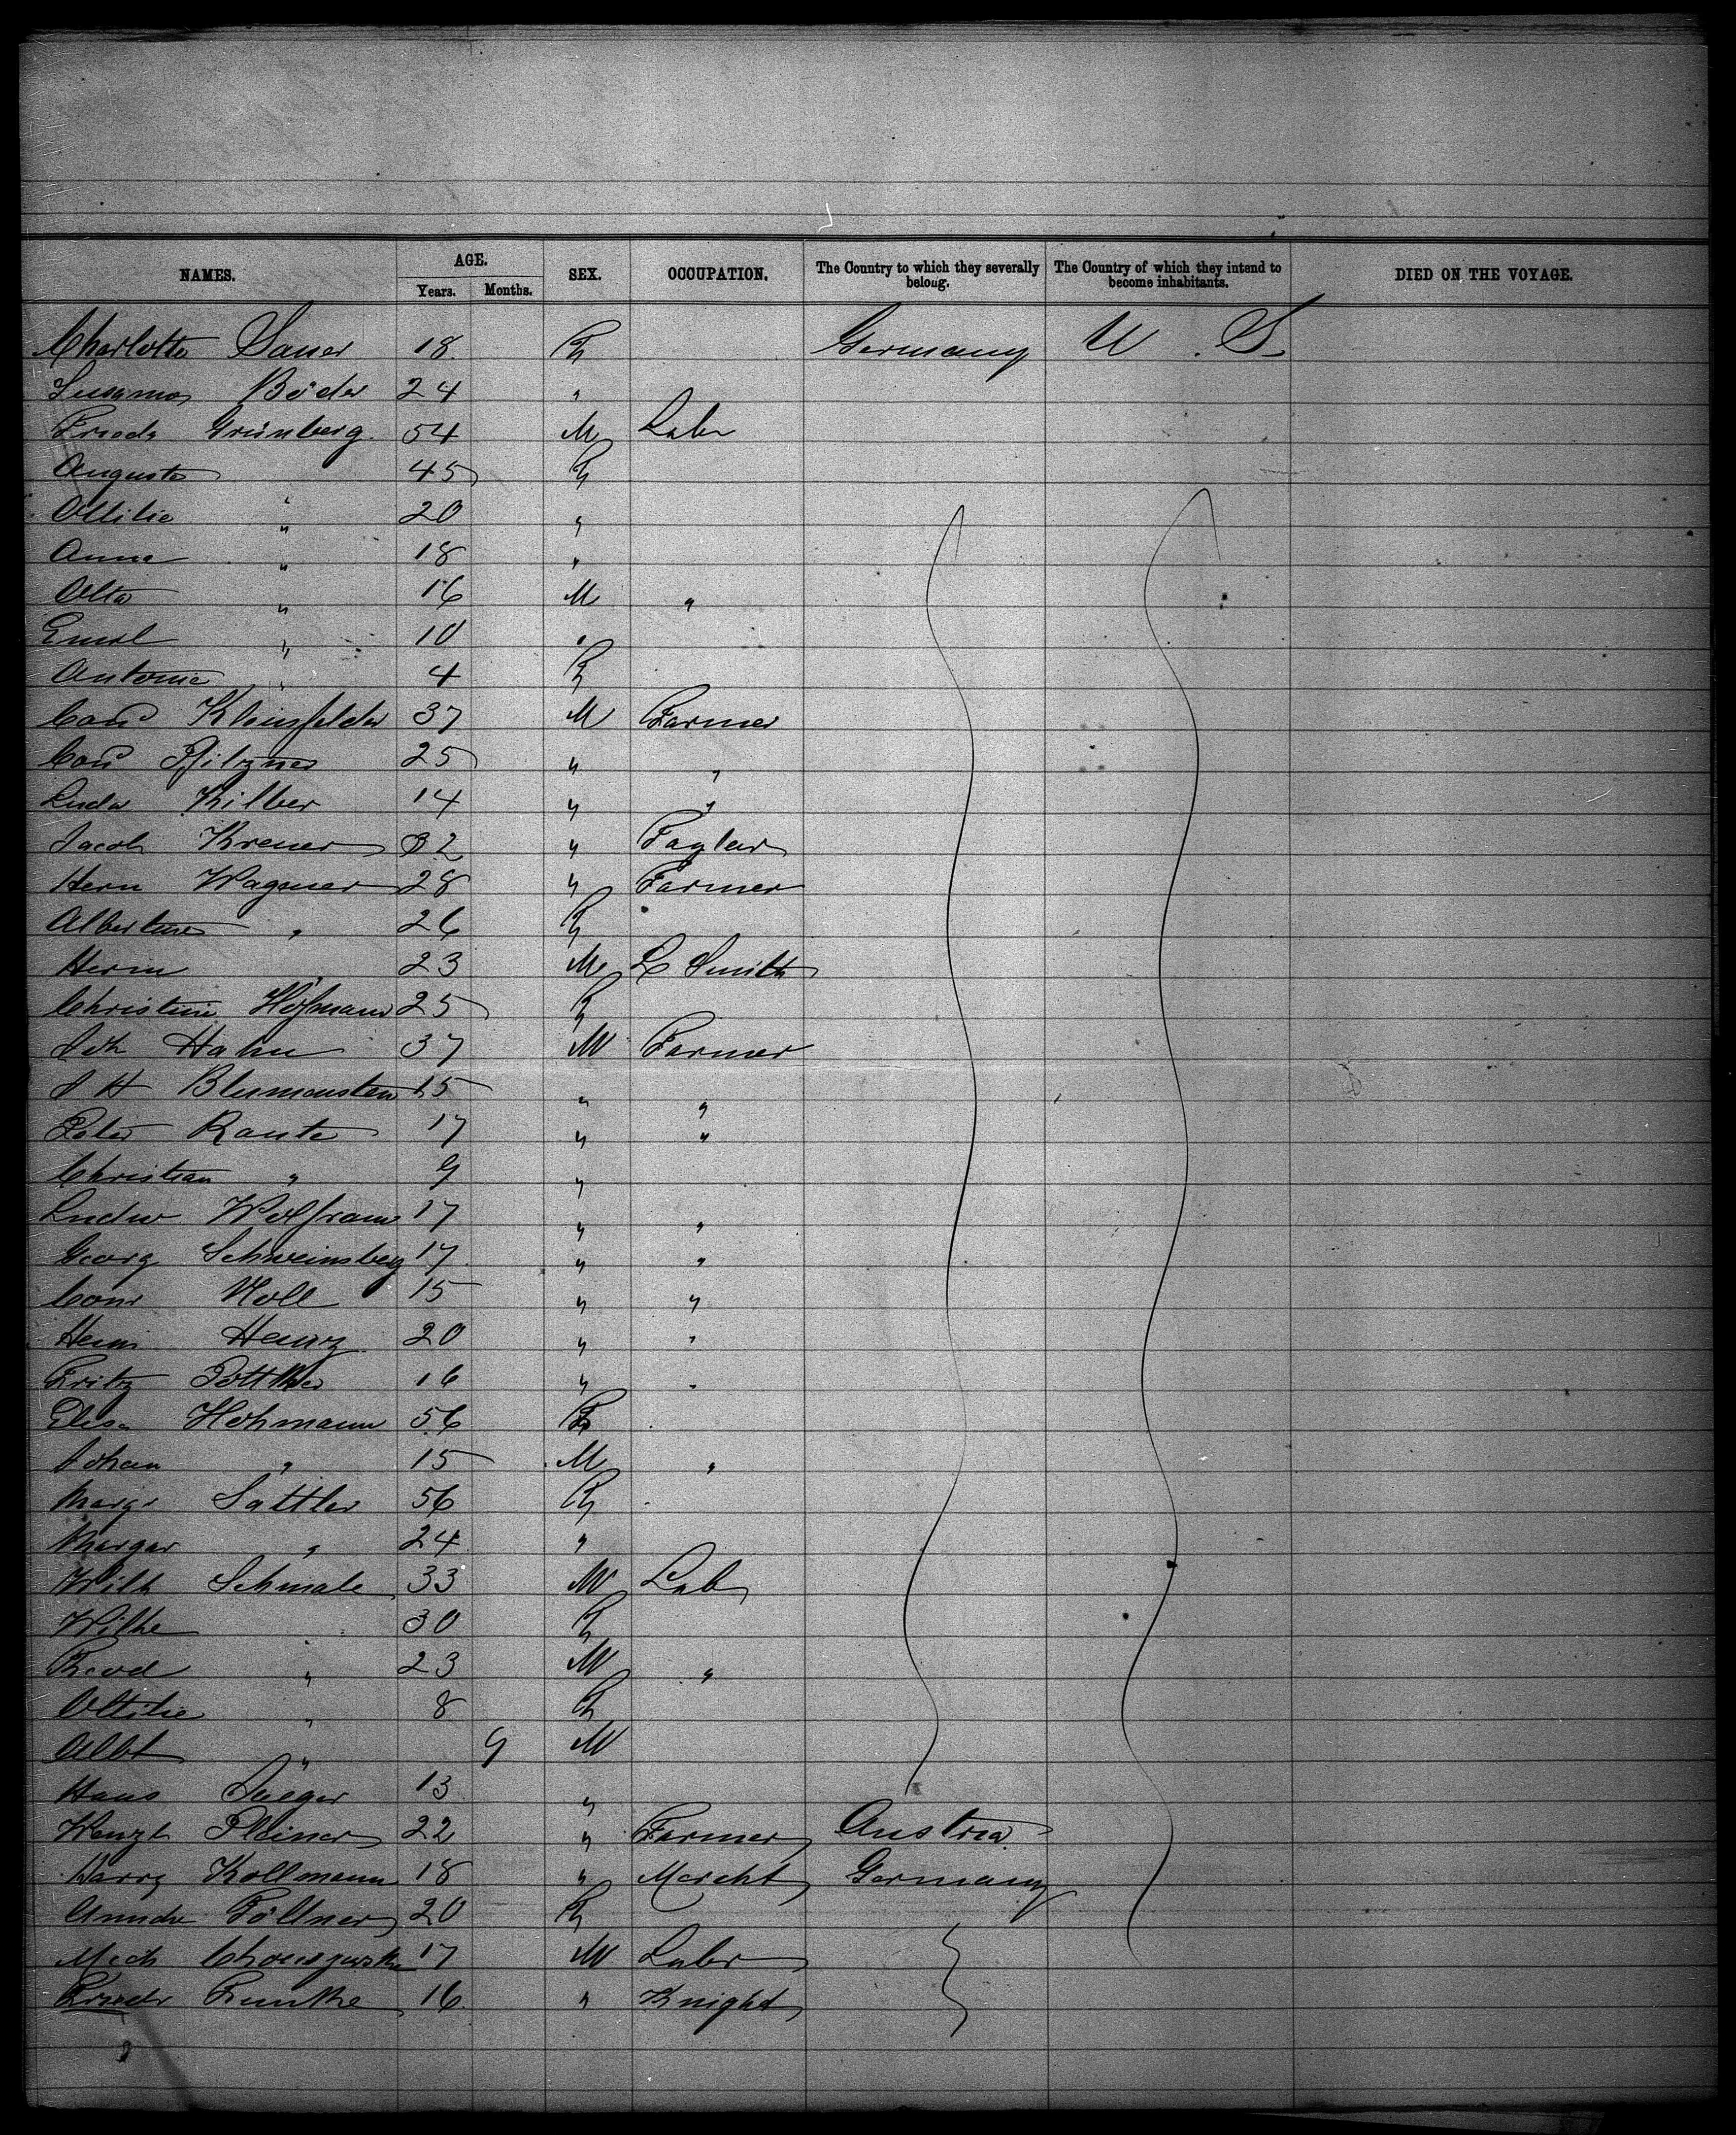 NAMES. AGE. SEX. OCCUPATION. The Country to which they severally belong. The Country of which they intend to become inhabitants. DIED ON THE VOYAGE.
Years. Months.
Charlotte Sauer 18 F Germany U. S.
Susanna Böder 24 "
Friedr Grünberg 54 M Labr
Auguste 45 F
Ottilie " 20 "
Anna " 18 "
Otto " 16 M "
Emil " 10 "
Antonie " 4 F
Conr Kleinsfelder 37 M Farmer
Conr Pfitzner 25 " "
Ludw Kilber 14 " "
Jacob Kremer 32 " Taylor
Herm Wagner 28 " Farmer
Albertine " 26 F
Herm " 23 M L Smith
Christine Hofmann 25 F
Joh Hahn 37 M Farmer
J H 15 " "
Peter Raute 17 " "
Christian " 9 "
Ludw Wolfram 17 " "
Georg Schweinsberg 17 " "
Conr Noll 15 " "
Henz 20 " "
Fritz 16 " "
Elisa Hohmann 56 F
Johan " 15 M "
Margr Sattler 56 F
Margar " 24 "
Wilh Schmale 33 M Lab
Wilhe " 30 F
" 23 M "
Ottilie " 8 F
Albt " 9 M
Hans Jaeger 13 "
Wenzl Pleiner 22 " Farmer Austria
Harry Kollmann 18 " Mercht Germany
Föllner 20 F
17 M Labr
Friedr Funke 16 " Knight